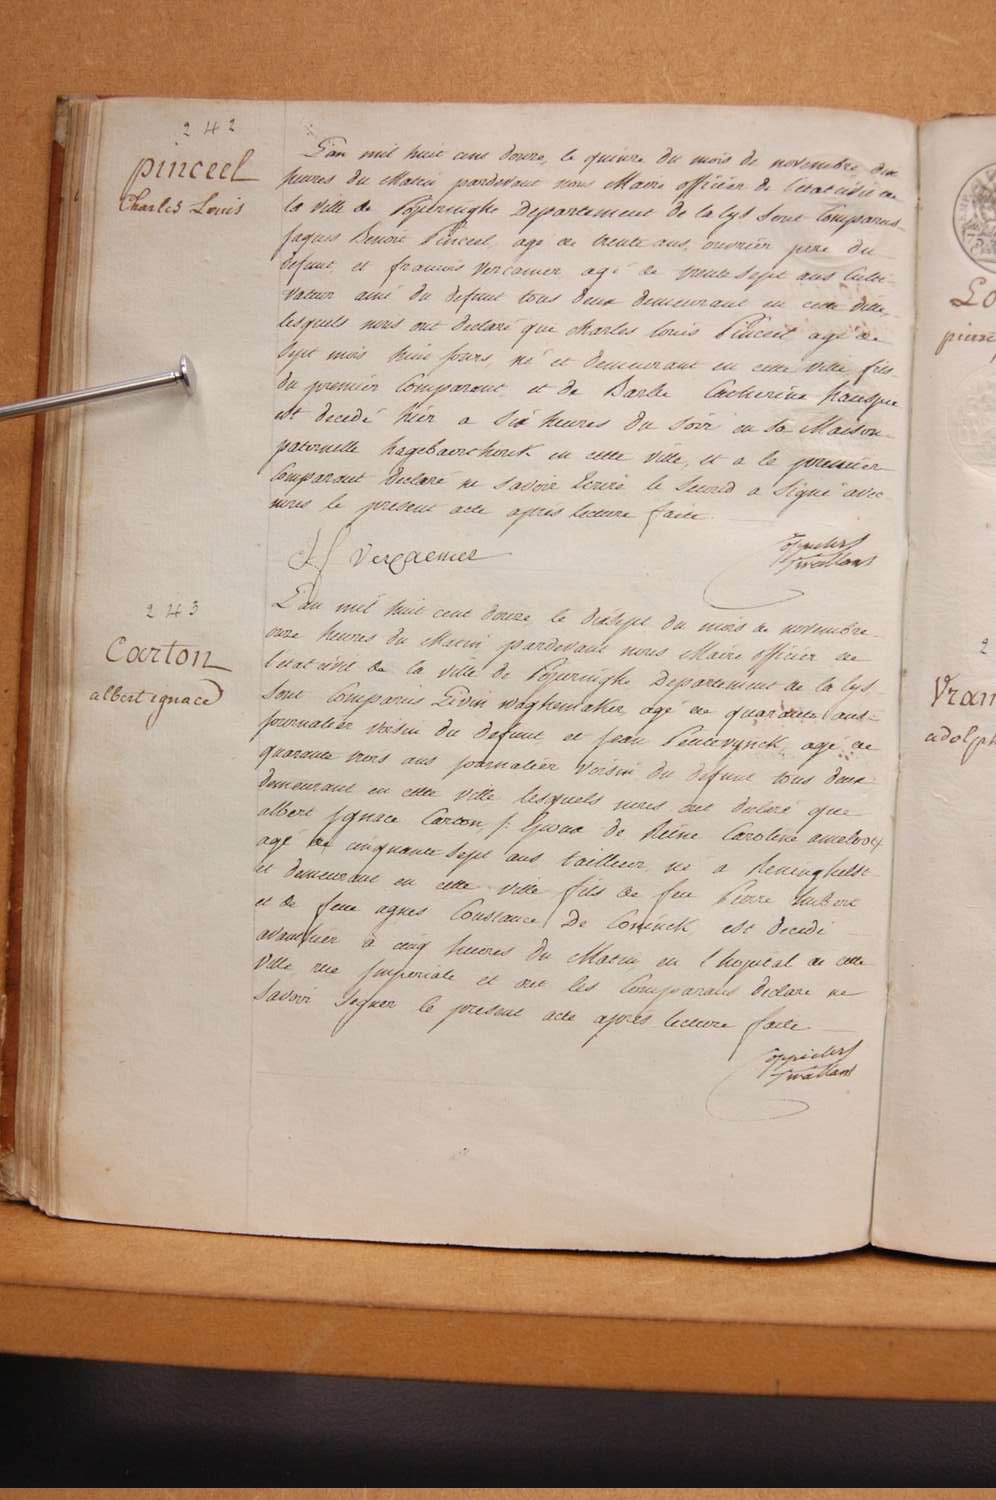 242
pinceel
Charles Louis
L'an mil huit cent douze, le quinze du mois de novembre, dix
heures du Matin pardevant nous Maire officier de l'etat civil de
la ville de Poperinghe Departement de la lys sont Comparus
Jaques Benoit Pinceel, agé de trente ans, ouvrier pere du
defunt, et francois Vercamer agé de trente sept ans Culti-
vateur ami du defunt tous deux demeurant en cette ville,
lesquels nous ont declaré que charles louis Pinceel agé de
Sept mois huit jours, né et demeurant en cette ville fils
du premier Comparant et de Barbe Catherine
est decedé hier a six heures du soir en sa Maison
paternelle en cette ville, et a le premier
Comparant declaré ne savoir Ecrire le second a signé avec
nous le present acte apres lecture faite.
243
Carton
albert ignace
L'an mil huit cent douze, le dixsept du mois de novembre
onze heures du Matin, pardevant nous Maire officier de
l'etat civil de la ville de Poperinghe Departement de la lys
sont Comparus Livin waghemaker, agé de quarante ans
journalier voisin du defunt, et jean agé de
quarante trois ans journalier voisin du defunt tous deux
demeurant en cette ville lesquels nous ont declaré que
albert Ignace Carton, Epoux de Reine Caroline
agé de cinquante sept ans tailleur, né a Reninghelst
et demeurant en cette ville fils de feu Pierre hubert
et de feue agnes Constance De Coninck est decedé
avanthier a cinq heures du Matin en l'hopital de cette
ville, rue Imperiale et ont les Comparans declaré ne
savoir signer le present acte apres lecture faite
pierre
Vran
adolph